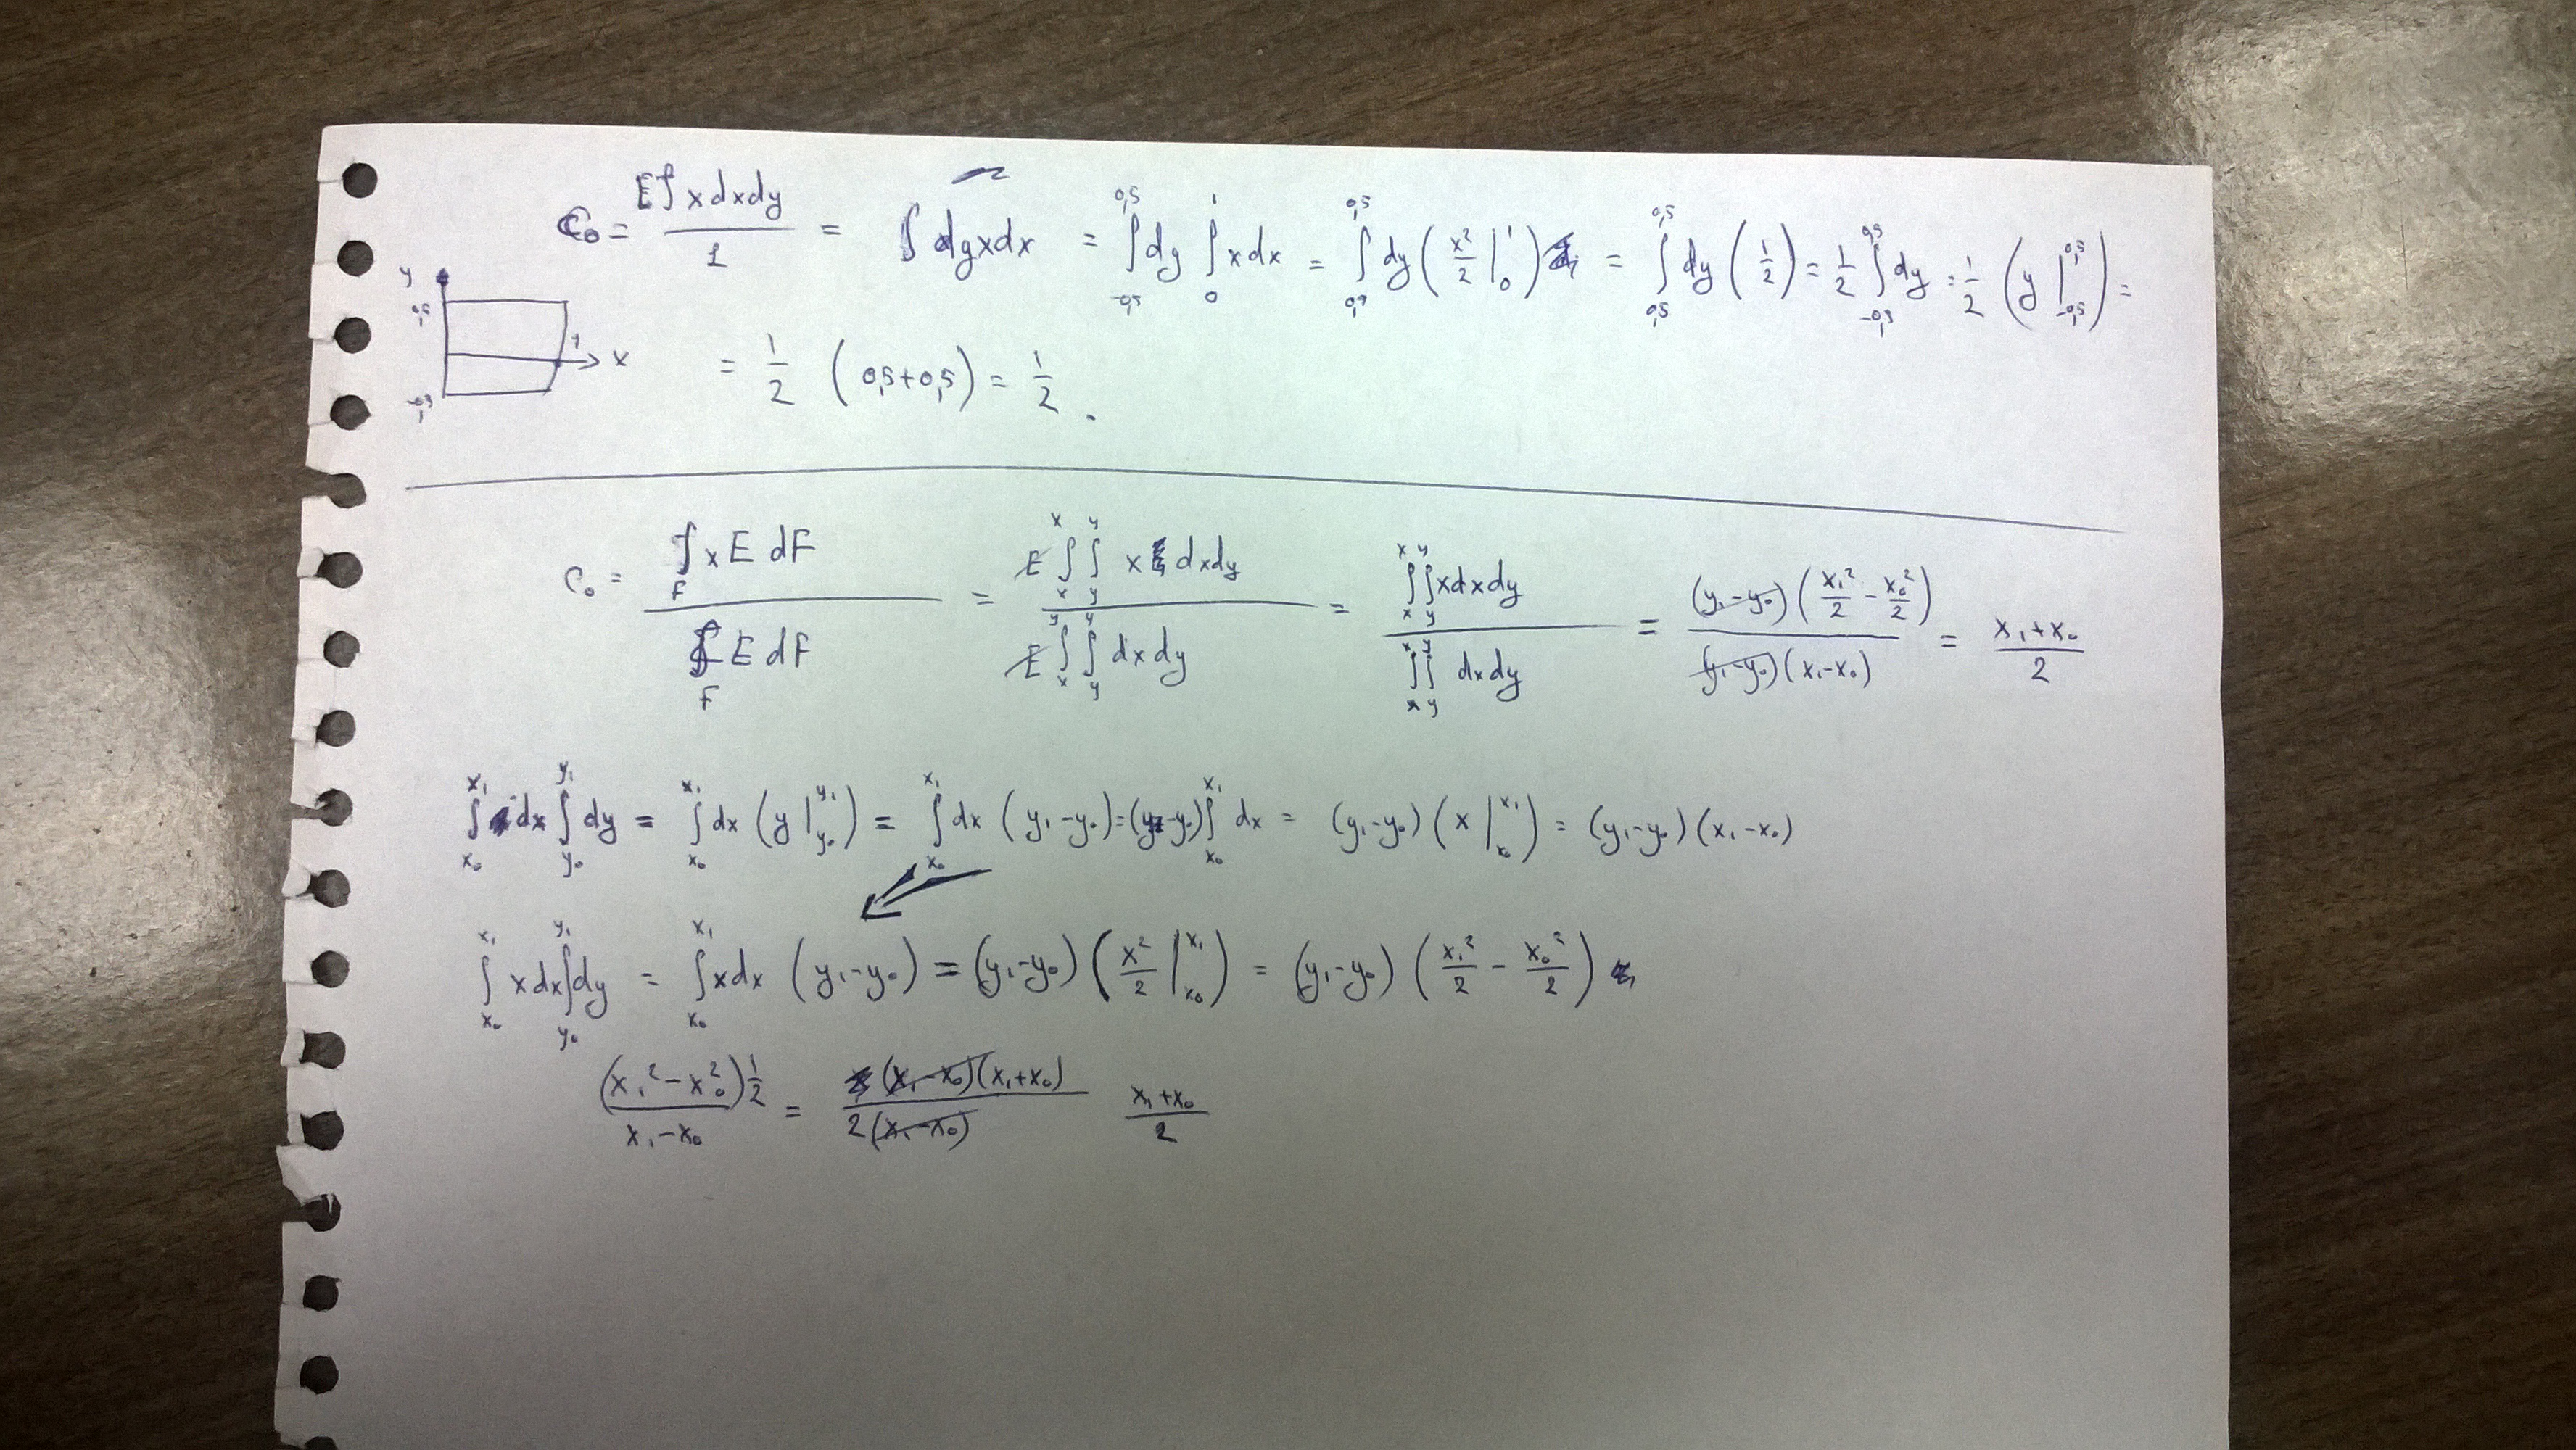 C₀ = E∫xdxdy / 1 = ∫dyxdx = ∫_{-0,5}^{0,5} dy ∫_0^1 xdx = ∫_{0,5}^{0,5} dy (x²/2 |_0^1) = ∫_{0,5}^{0,5} dy (1/2) = 1/2 ∫_{-0,5}^{0,5} dy = 1/2 (y |_{-0,5}^{0,5}) =
y 0,5 -0,5 1 x
= 1/2 (0,5+0,5) = 1/2 .
C₀ = ∫_F x E dF / ∫_F E dF = E ∫_x^x ∫_y^y x dxdy / E ∫_x^y ∫_y^y dxdy = ∫_x^x ∫_y^y xdxdy / ∫_x^x ∫_y^y dxdy = (y₁-y₀)(x₁²/2 - x₀²/2) / (y₁-y₀)(x₁-x₀) = x₁+x₀ / 2
∫_{x₀}^{x₁} dx ∫_{y₀}^{y₁} dy = ∫_{x₀}^{x₁} dx (y |_{y₀}^{y₁}) = ∫_{x₀}^{x₁} dx (y₁-y₀) = (y₁-y₀) ∫_{x₀}^{x₁} dx = (y₁-y₀)(x |_{x₀}^{x₁}) = (y₁-y₀)(x₁-x₀)
∫_{x₀}^{x₁} xdx ∫_{y₀}^{y₁} dy = ∫_{x₀}^{x₁} xdx (y₁-y₀) = (y₁-y₀)(x²/2 |_{x₀}^{x₁}) = (y₁-y₀)(x₁²/2 - x₀²/2)
(x₁²-x₀²)1/2 / x₁-x₀ = (x₁-x₀)(x₁+x₀) / 2(x₁-x₀) x₁+x₀ / 2